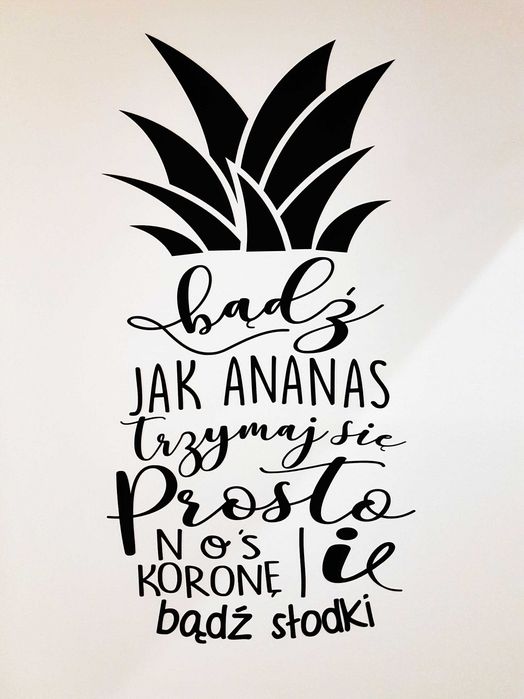 bądź
JAK ANANAS
trzymaj się
Prosto
NO'S
KORONĘ | i
bądź słodki